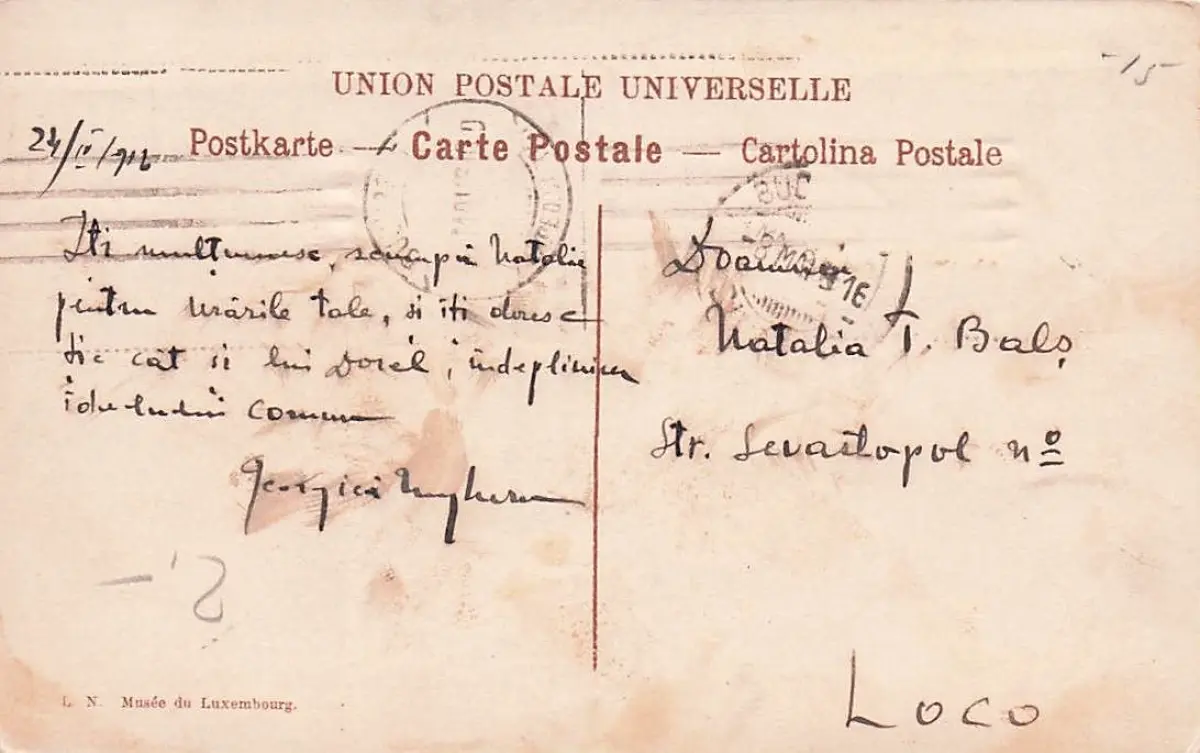 -15
UNION POSTALE UNIVERSELLE
24/IV/916
Postkarte — Carte Postale — Cartolina Postale
BUC
16
Iti mulțumesc, scumpa Natalie
pentru urările tale, si iti doresc
tie cât si lui Dorel, indeplinirea
idealului comun
Georgica
Doamnei
Natalia T. Balș
Str. Sevastopol nº
L. N. Musée du Luxembourg.
Loco